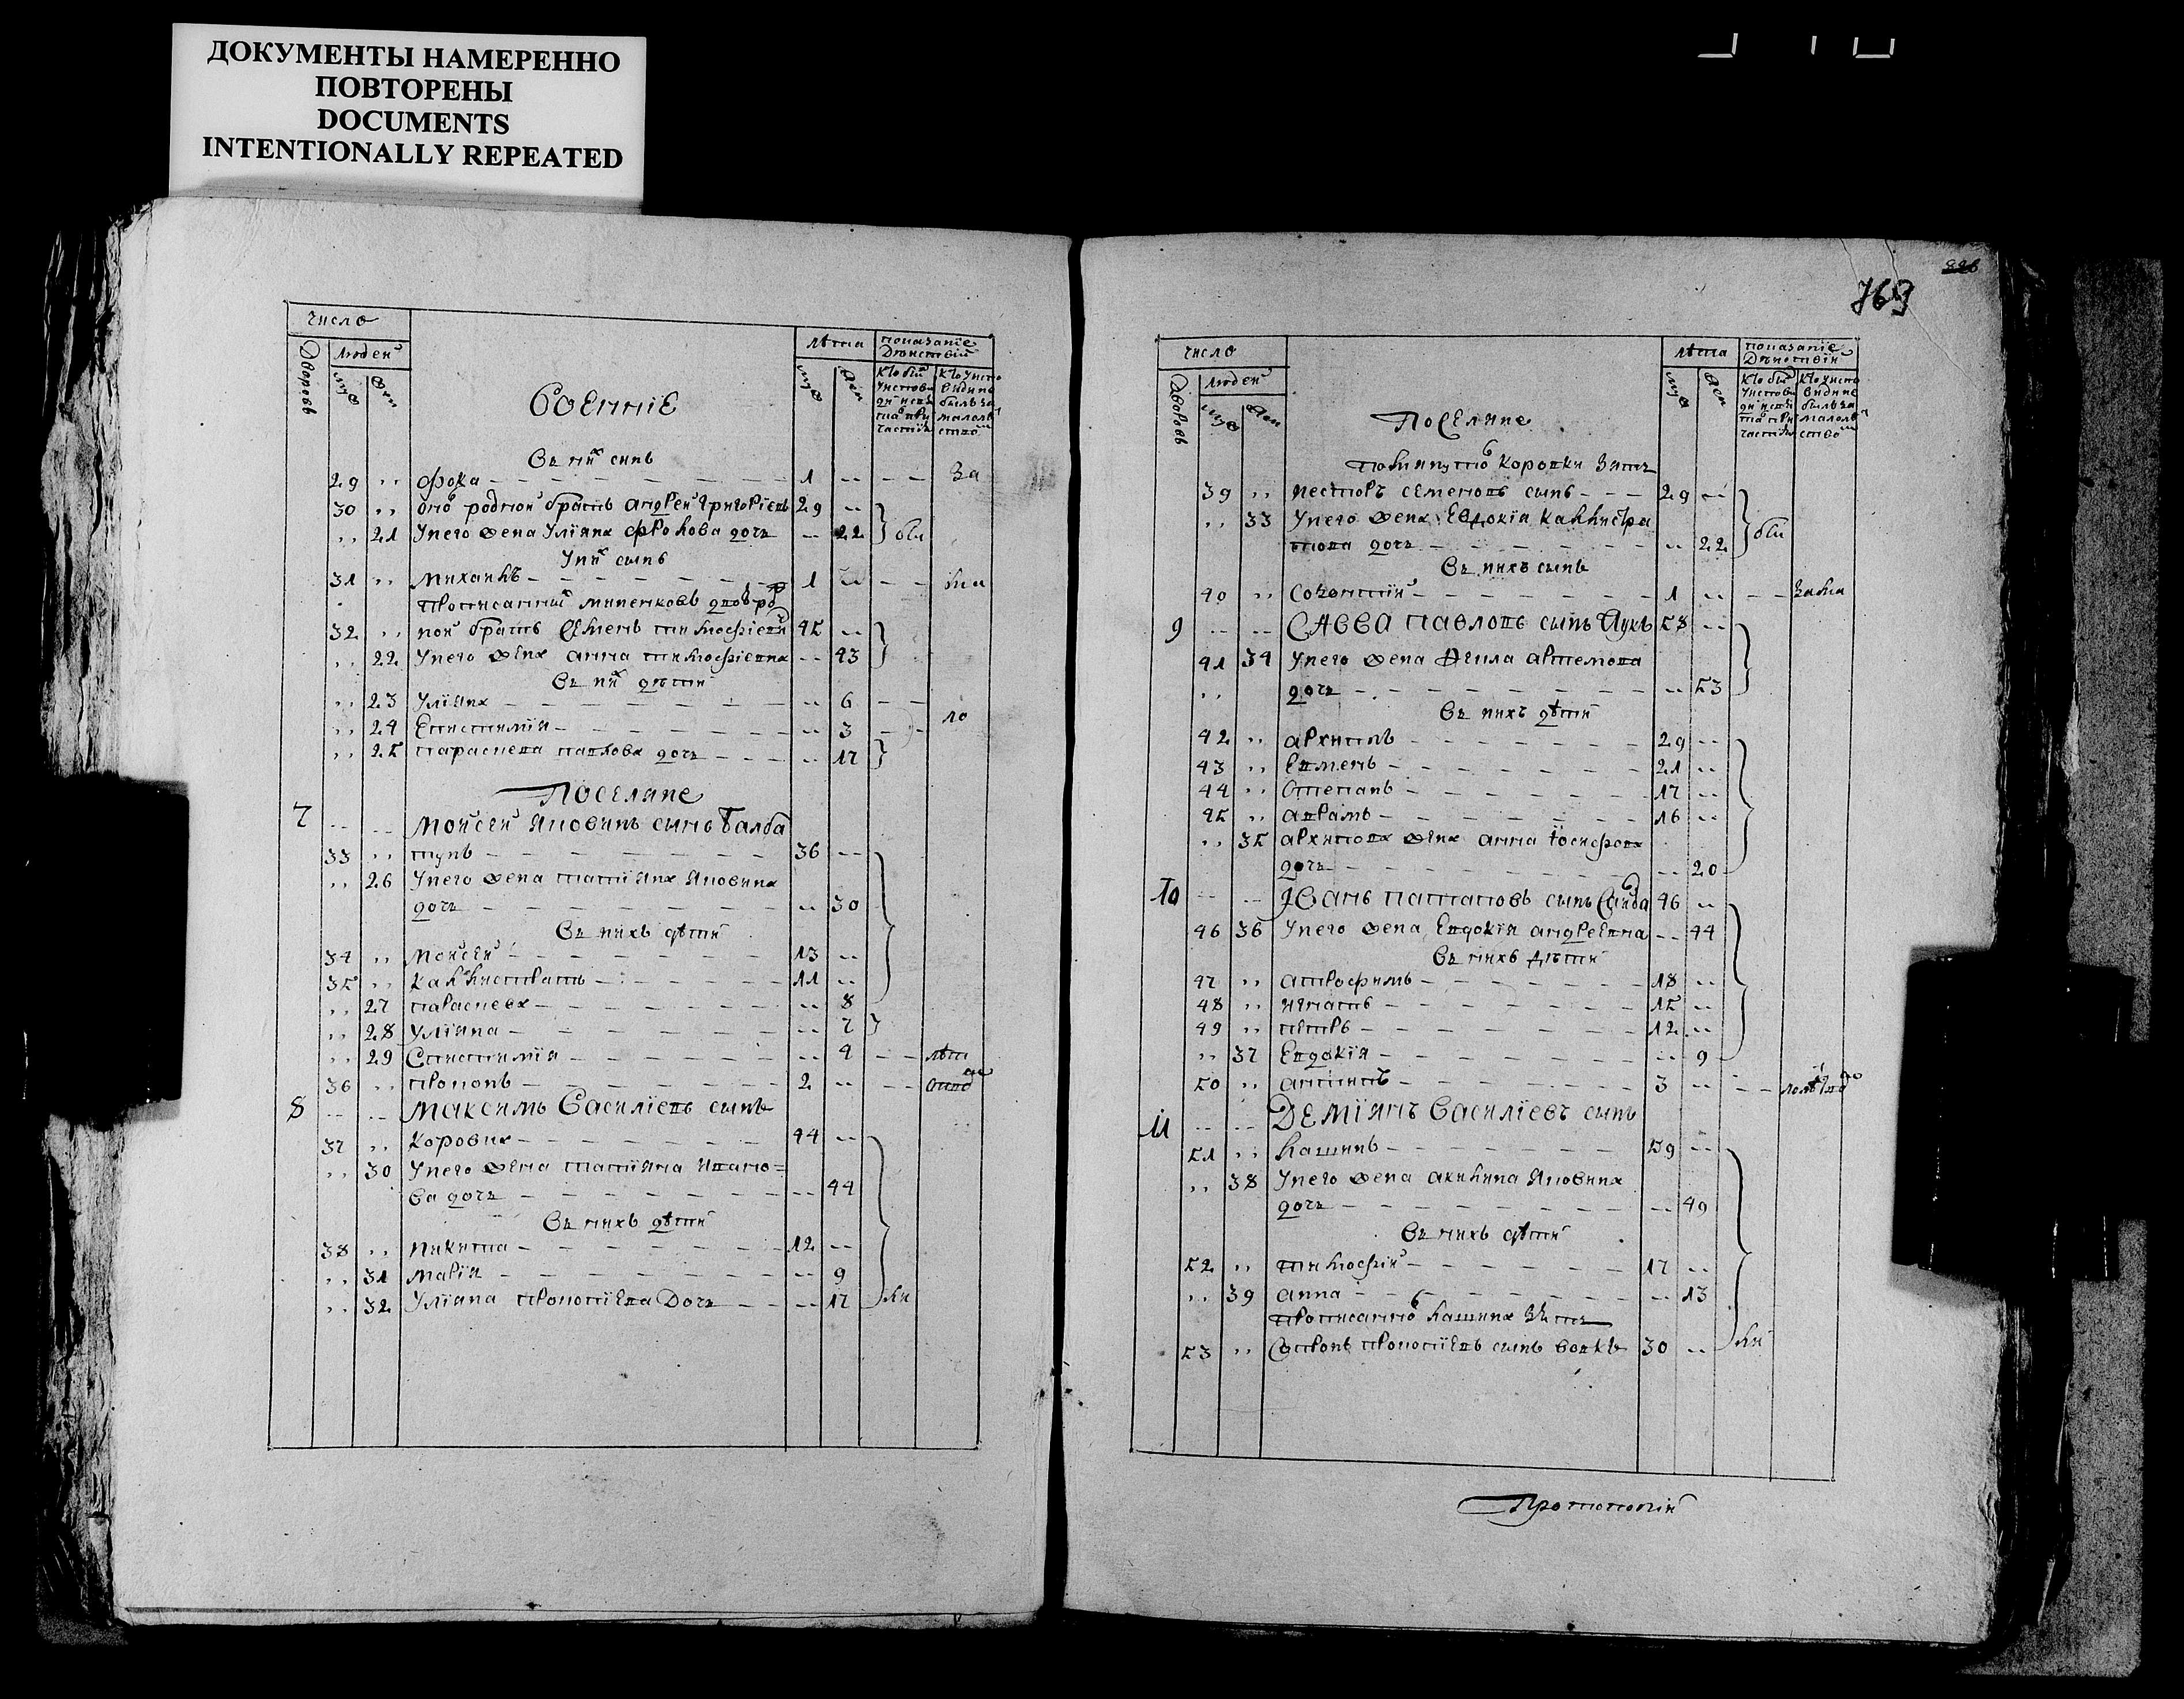 ДОКУМЕНТЫ НАМЕРЕННО
ПОВТОРЕНЫ
DOCUMENTS
INTENTIONALLY REPEATED
число
людей
Дворовъ
муж
жен
Воеинїе
лѣта
муж
жен
показанїе
Дѣйствїй
Въ них синъ
29 фока 1 За
30 Онъ родной братъ андрей григорїевъ 29
21 У него жена Улїяна фролова дочъ 22 бы
У них сынъ
31 михаилъ 1 ма
32 ной братъ Семенъ тимофїевъ 45
22 У него жена анна тимофїевна 43
Въ них дѣти
23 Улїяна 6
24 Епистимїя 3 ло
25 параскева павлова дочъ 17
Поселяне
7 мойсей яковинъ синъ Балба
33 тунъ 36
26 У него жена татїяна яковина
дочъ 30
Въ нихъ дѣти
34 мойсей 13
35 каллистратъ 11
27 параскева 8
28 улїяна 7
29 Епистимїя 4 лѣт
36 прокопъ 2
8 максимъ Василїевъ сынъ
37 Коровка 44
30 У него жена татїяна ивано=
ва дочъ 44
Въ нихъ дѣти
38 никита 12
31 марїя 9
32 Улїяна прокопїева Дочъ 17 ли
763
число
людей
Дворовъ
муж
жен
Поселяне
лѣта
муж
жен
показанїе
Дѣйствїй
помянутого Коровки зять
39 несторъ семеновъ сынъ 29
33 У него жена Евдокїя каллистра
това дочъ 22 бы
Въ нихъ сынъ
40 Созонтїй 1 Зама
9 САВВА павловъ сынъ Чукъ 58
41 34 У него жена Агила артемова
дочъ 53
Въ нихъ дѣти
42 архипъ 29
43 Евменъ 21
44 Степанъ 17
45 аврамъ 16
35 архипова жена анна їосифова
дочъ 20
10 Иванъ патаповъ сынъ 46
46 36 У него жена Евдокїя андреевна 44
Въ нихъ дѣти
47 атрофимъ 18
48 игнатъ 15
49 петръ 12
37 Евдокїя 9
50 антипъ 3
11 ДЕМїянъ Василїевъ сынъ
51 кашинъ 59
38 У него жена акилина яковина
дочъ 49
Въ нихъ дѣти
52 тимофїй 17
39 анна 13
прописанного кашина зять
53 Софронъ прокопїевъ сынъ вовкъ 30 ли
Протопопїи